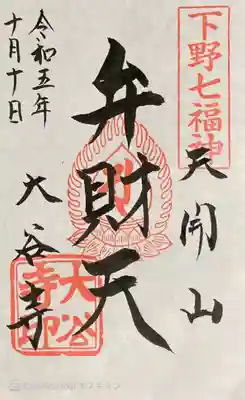 下野七福神
天開山
弁財天
大谷寺
大谷寺印
令和五年
十月十日